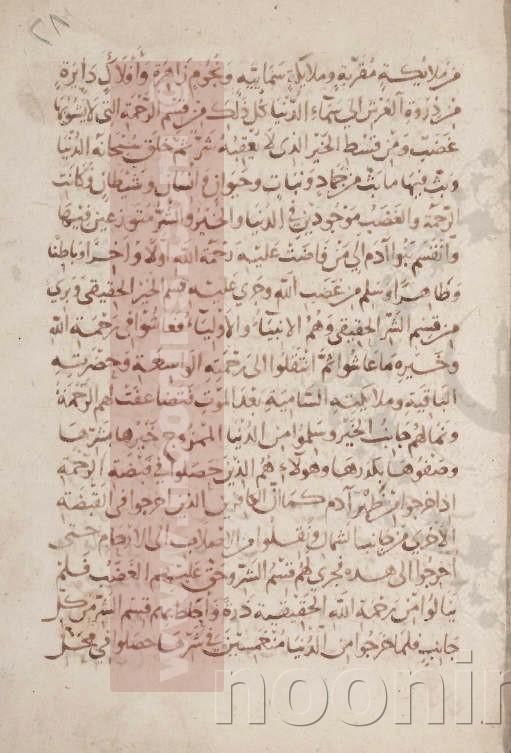 ٢٨
من ملائكة مقربة وملائكة سمائية ونجوم زاهرة وأفلاك دايرة
من ذروة العرش الى سماء الدنيا كل ذلك من قسم الرحمة التى لا يشوبها
غضب ومن قسط الخير الذى لا شر ثم خلق سبحانه الدنيا
وبث فيها ما بث من جماد ونبات وحيوان وانسان وشيطان فكانت
الرحمة والغضب موجودين فى الدنيا والخير والشر متوزعين فيها
وانقسم بنوا آدم الى من فاضت عليه رحمة الله اولا واخرا وباطنا
وظاهرا وسلم من غضب الله وجرى عليه قسم الخير الحقيقى وبرى
من قسم الشر الحقيقى وهم الانبياء والاولياء فعاشوا فى رحمة الله
وخيره ما عاشوا ثم انتقلوا الى رحمته الواسعة وحضرته
الباقية وملائكته السامية بعد الموت فتضاعفت لهم الرحمة
ونما لهم جانب الخير وسلموا من الدنيا الممزوج خيرها بشرها
وصفوها بكدرها وهولاء هم الذين حصلوا فى قبضة الرحمة
اذ اخرجوا من ظهر آدم كمال الذين اخرجوا فى القبضة
الاخرى من جانب الشمال ونقلوا من الاصلاب الى الارحام حتى
اخرجوا الى هذه فجرى لهم قسم الشر وحق عليهم الغضب فلم
ينالوا من رحمة الله الحقيقية ذرة واحاط بهم قسم الشر من كل
جانب فلما خرجوا من الدنيا منغمسين فى شرها حصلوا فى محل
www.noonin
noonin